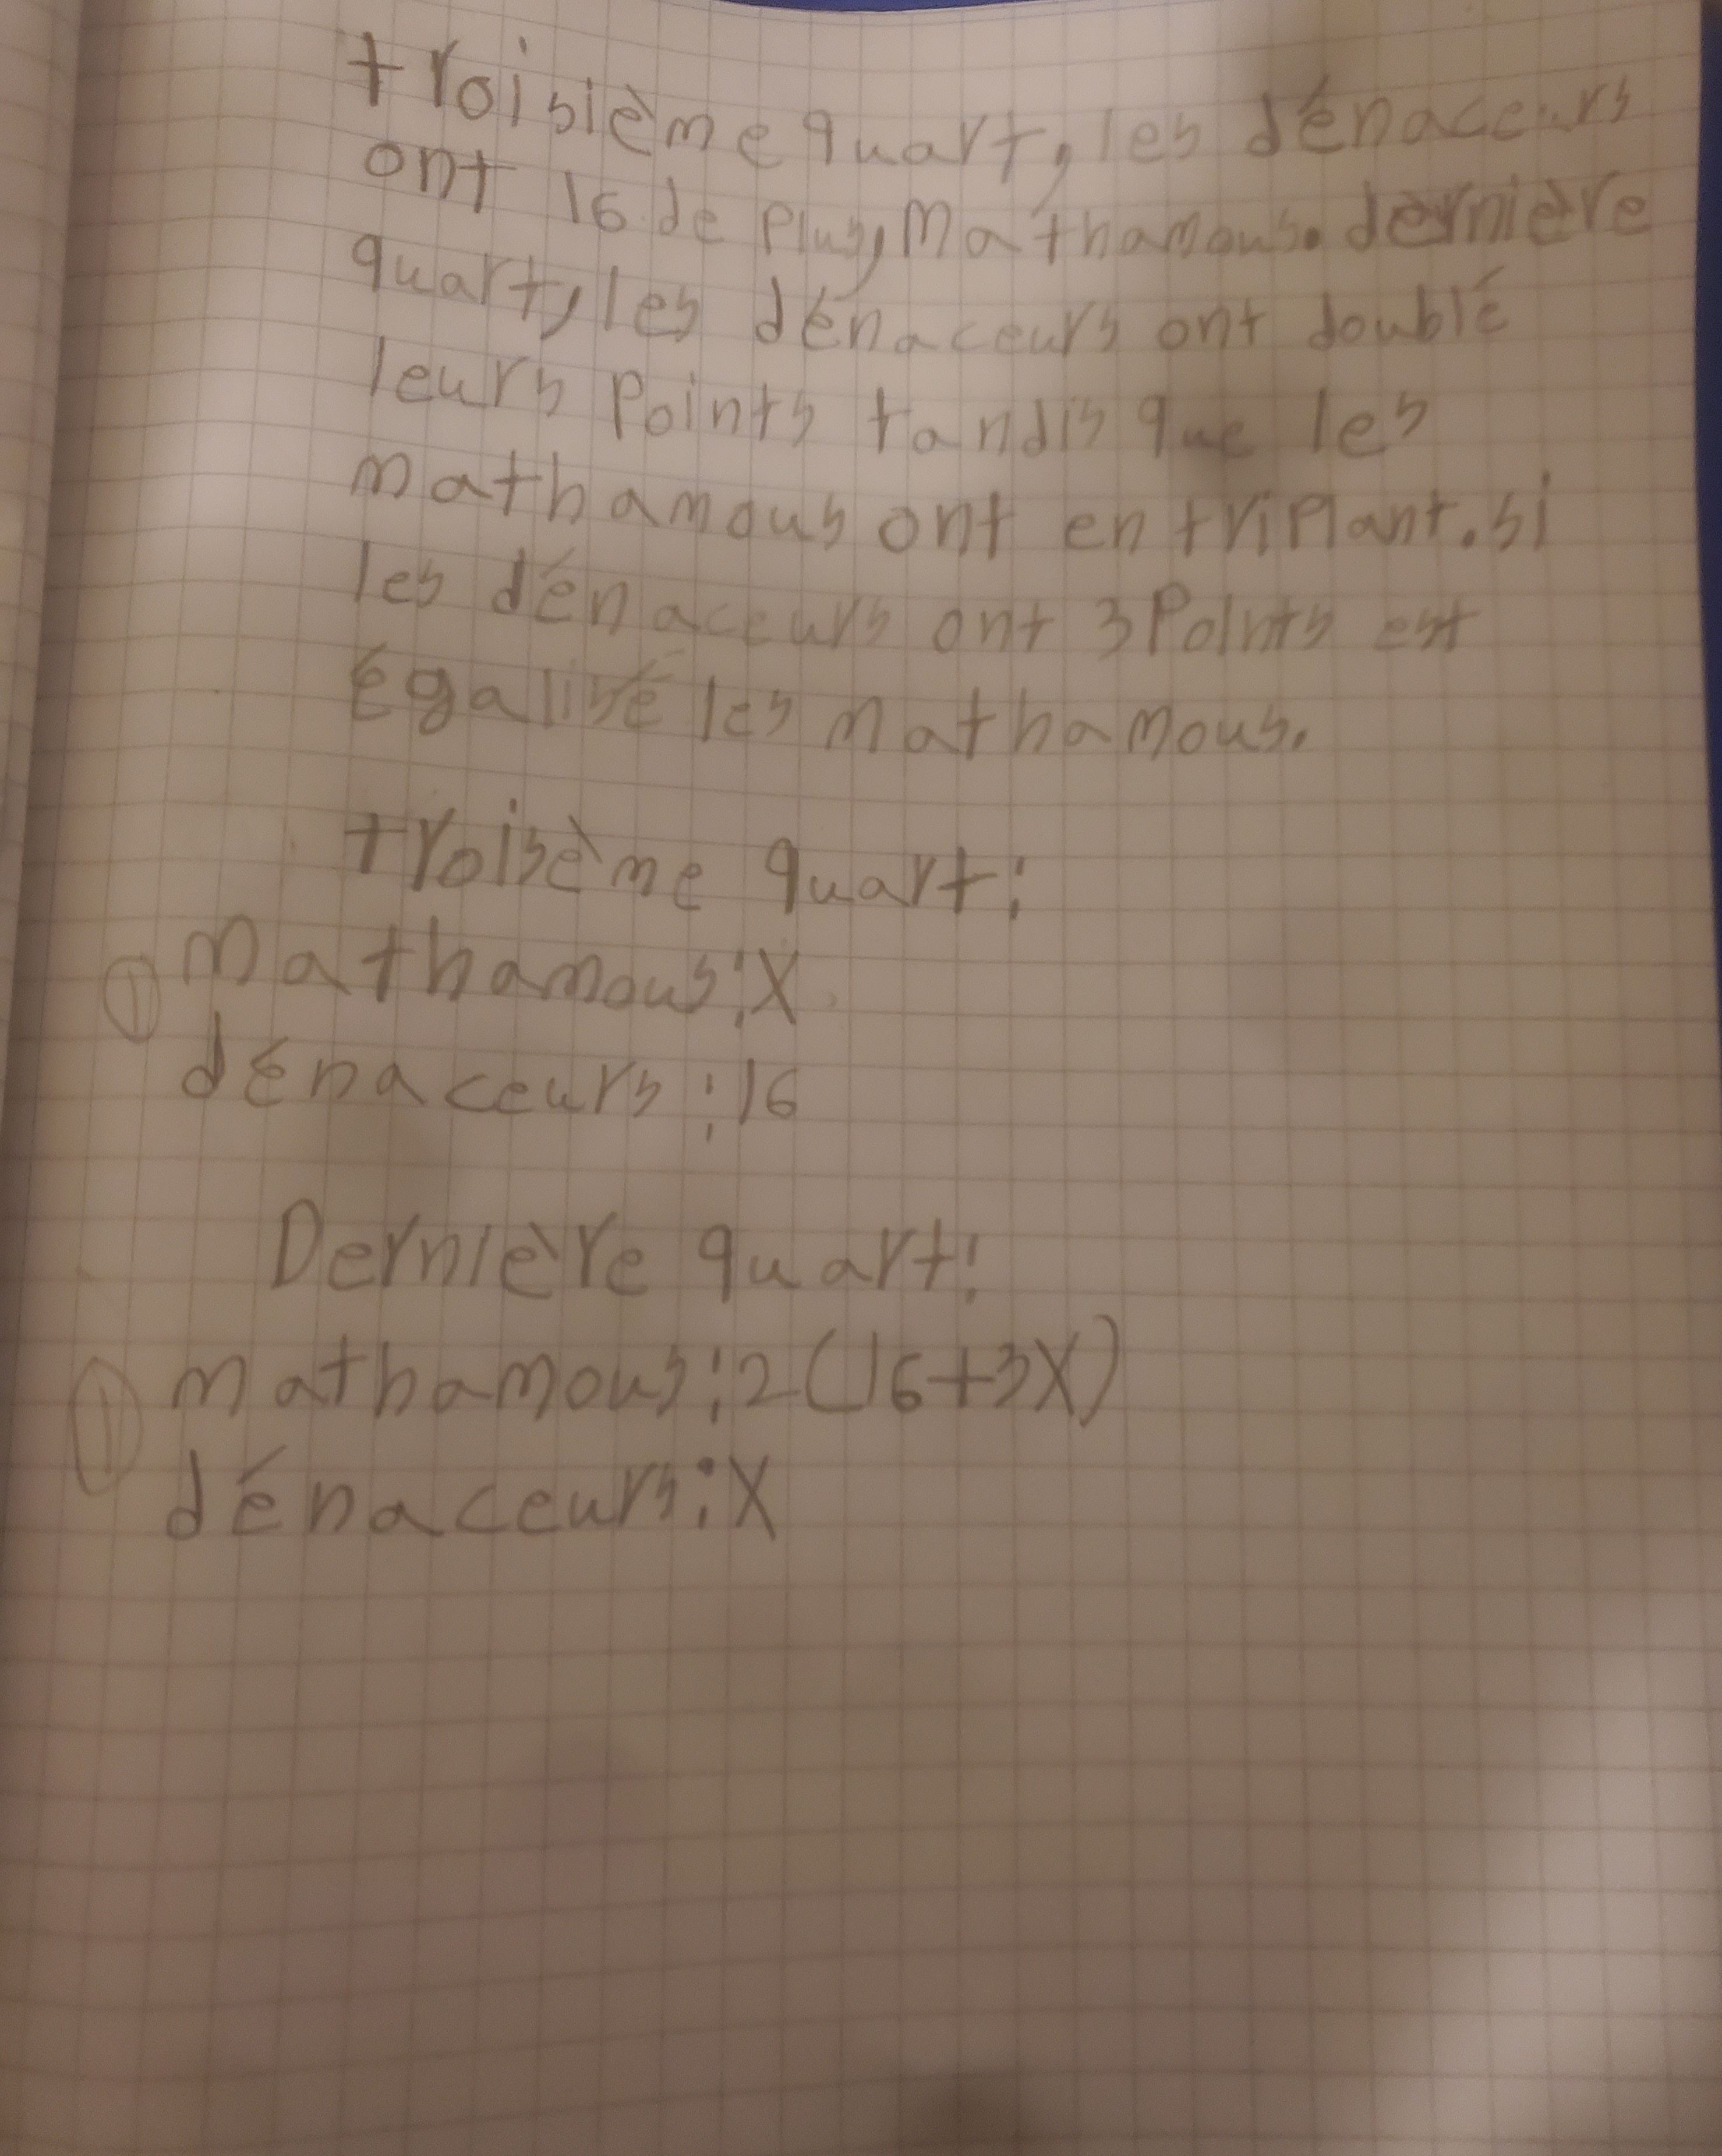 troisième quart, les dénaceurs
ont 16 de plus, Mathamous. dernière
quart, les dénaceurs ont doublé
leurs points tandis que les
mathamous ont en triplant. si
les dénaceurs ont 3 Points est
égalisé les mathamous.
troisème quart:
① mathamous: X
dénaceurs: 16
Dernière quart:
① mathamous: 2(16+3X)
dénaceurs: X